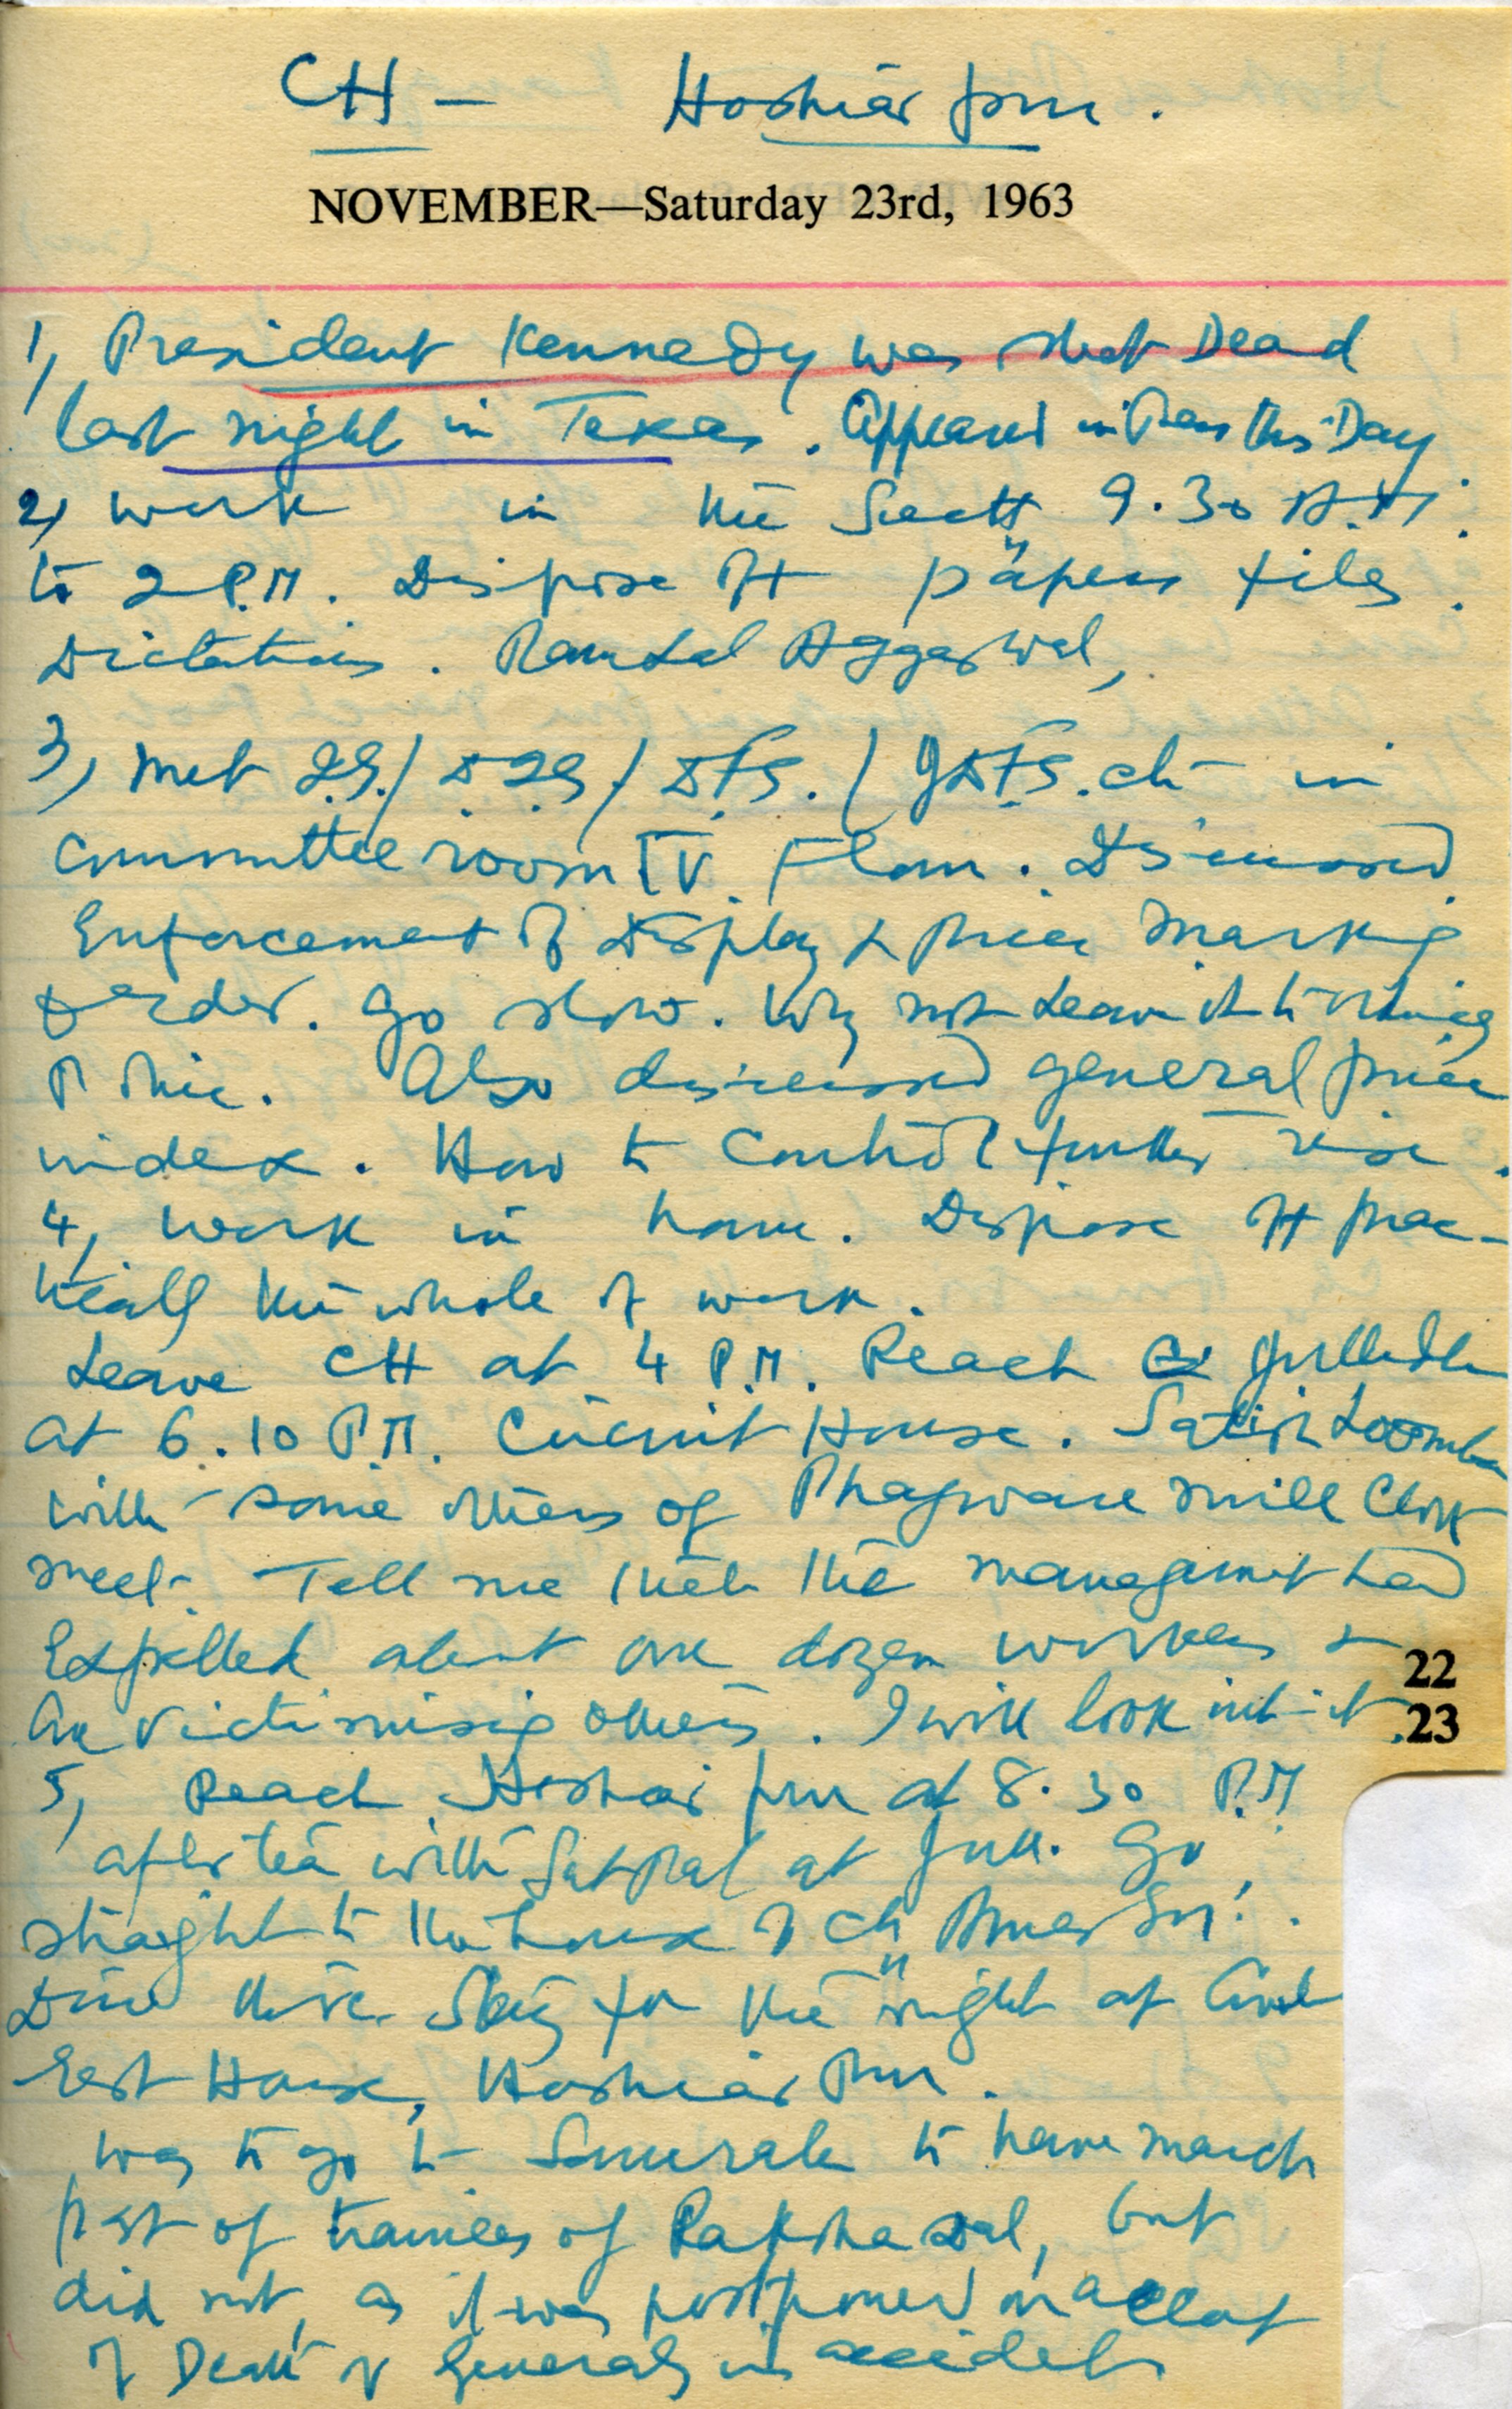 CH - Hoshiar pur.
NOVEMBER—Saturday 23rd, 1963
1, President Kennedy was shot Dead
last night in Texas. Appeared in Press this Day
2, work in the Sectt 9.30 A.M.
to 2 P.M. Dispose off papers files.
Dictations. Ram Lal Aggarwal,
3, Met
Committee room IV Floor. Discussed
Enforcement of Display & price marking
order. Go slow. Why not leave it to ordinary
Police. Also discussed general price
index. How to control further rise.
4, work in home. Dispose off prac-
tically the whole of work.
Leave CH at 4 P.M. Reach Jullundur
at 6.10 P.M. Circuit House. Satish Loomba
with some others of Phagwara mill
meet. Tell me that the management had
Expelled about one dozen workers &
are victimising others. I will look into it
22
23
5, Reach Hoshiar pur at 8.30 P.M
after tea with Satpal at Jull. Go
straight to the house of Ch Amar Singh.
Dine there. Stay for the night at Canal
Rest House, Hoshiar Pur.
was to go to to have march
past of trainees of Raksha Dal, but
did not, as it was postponed on acct
of Death of Generals in accident